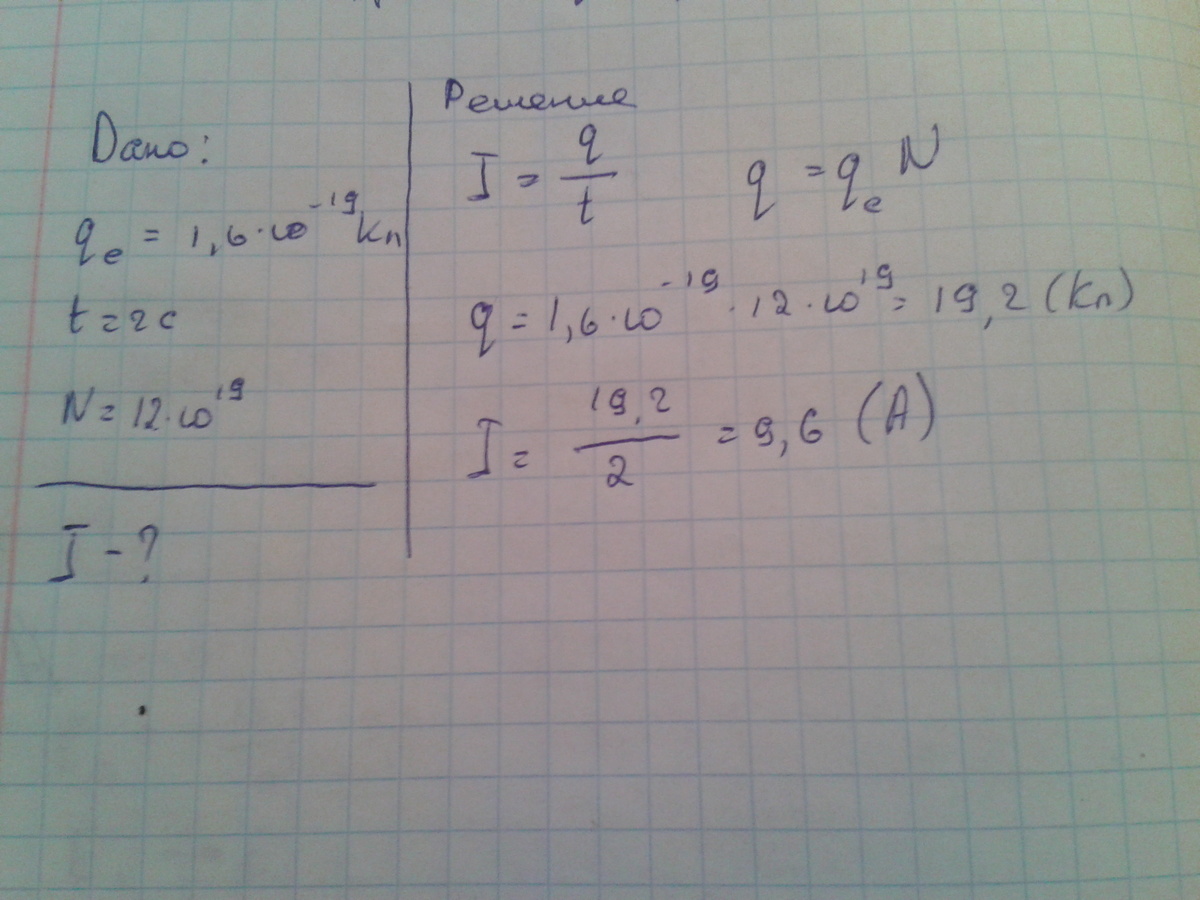 Дано:
qₑ = 1,6·10⁻¹⁹ Кл
t = 2 с
N = 12·10¹⁹
I - ?
Решение
I = q/t q = qₑ N
q = 1,6·10⁻¹⁹ · 12·10¹⁹ = 19,2 (Кл)
I = 19,2/2 = 9,6 (А)